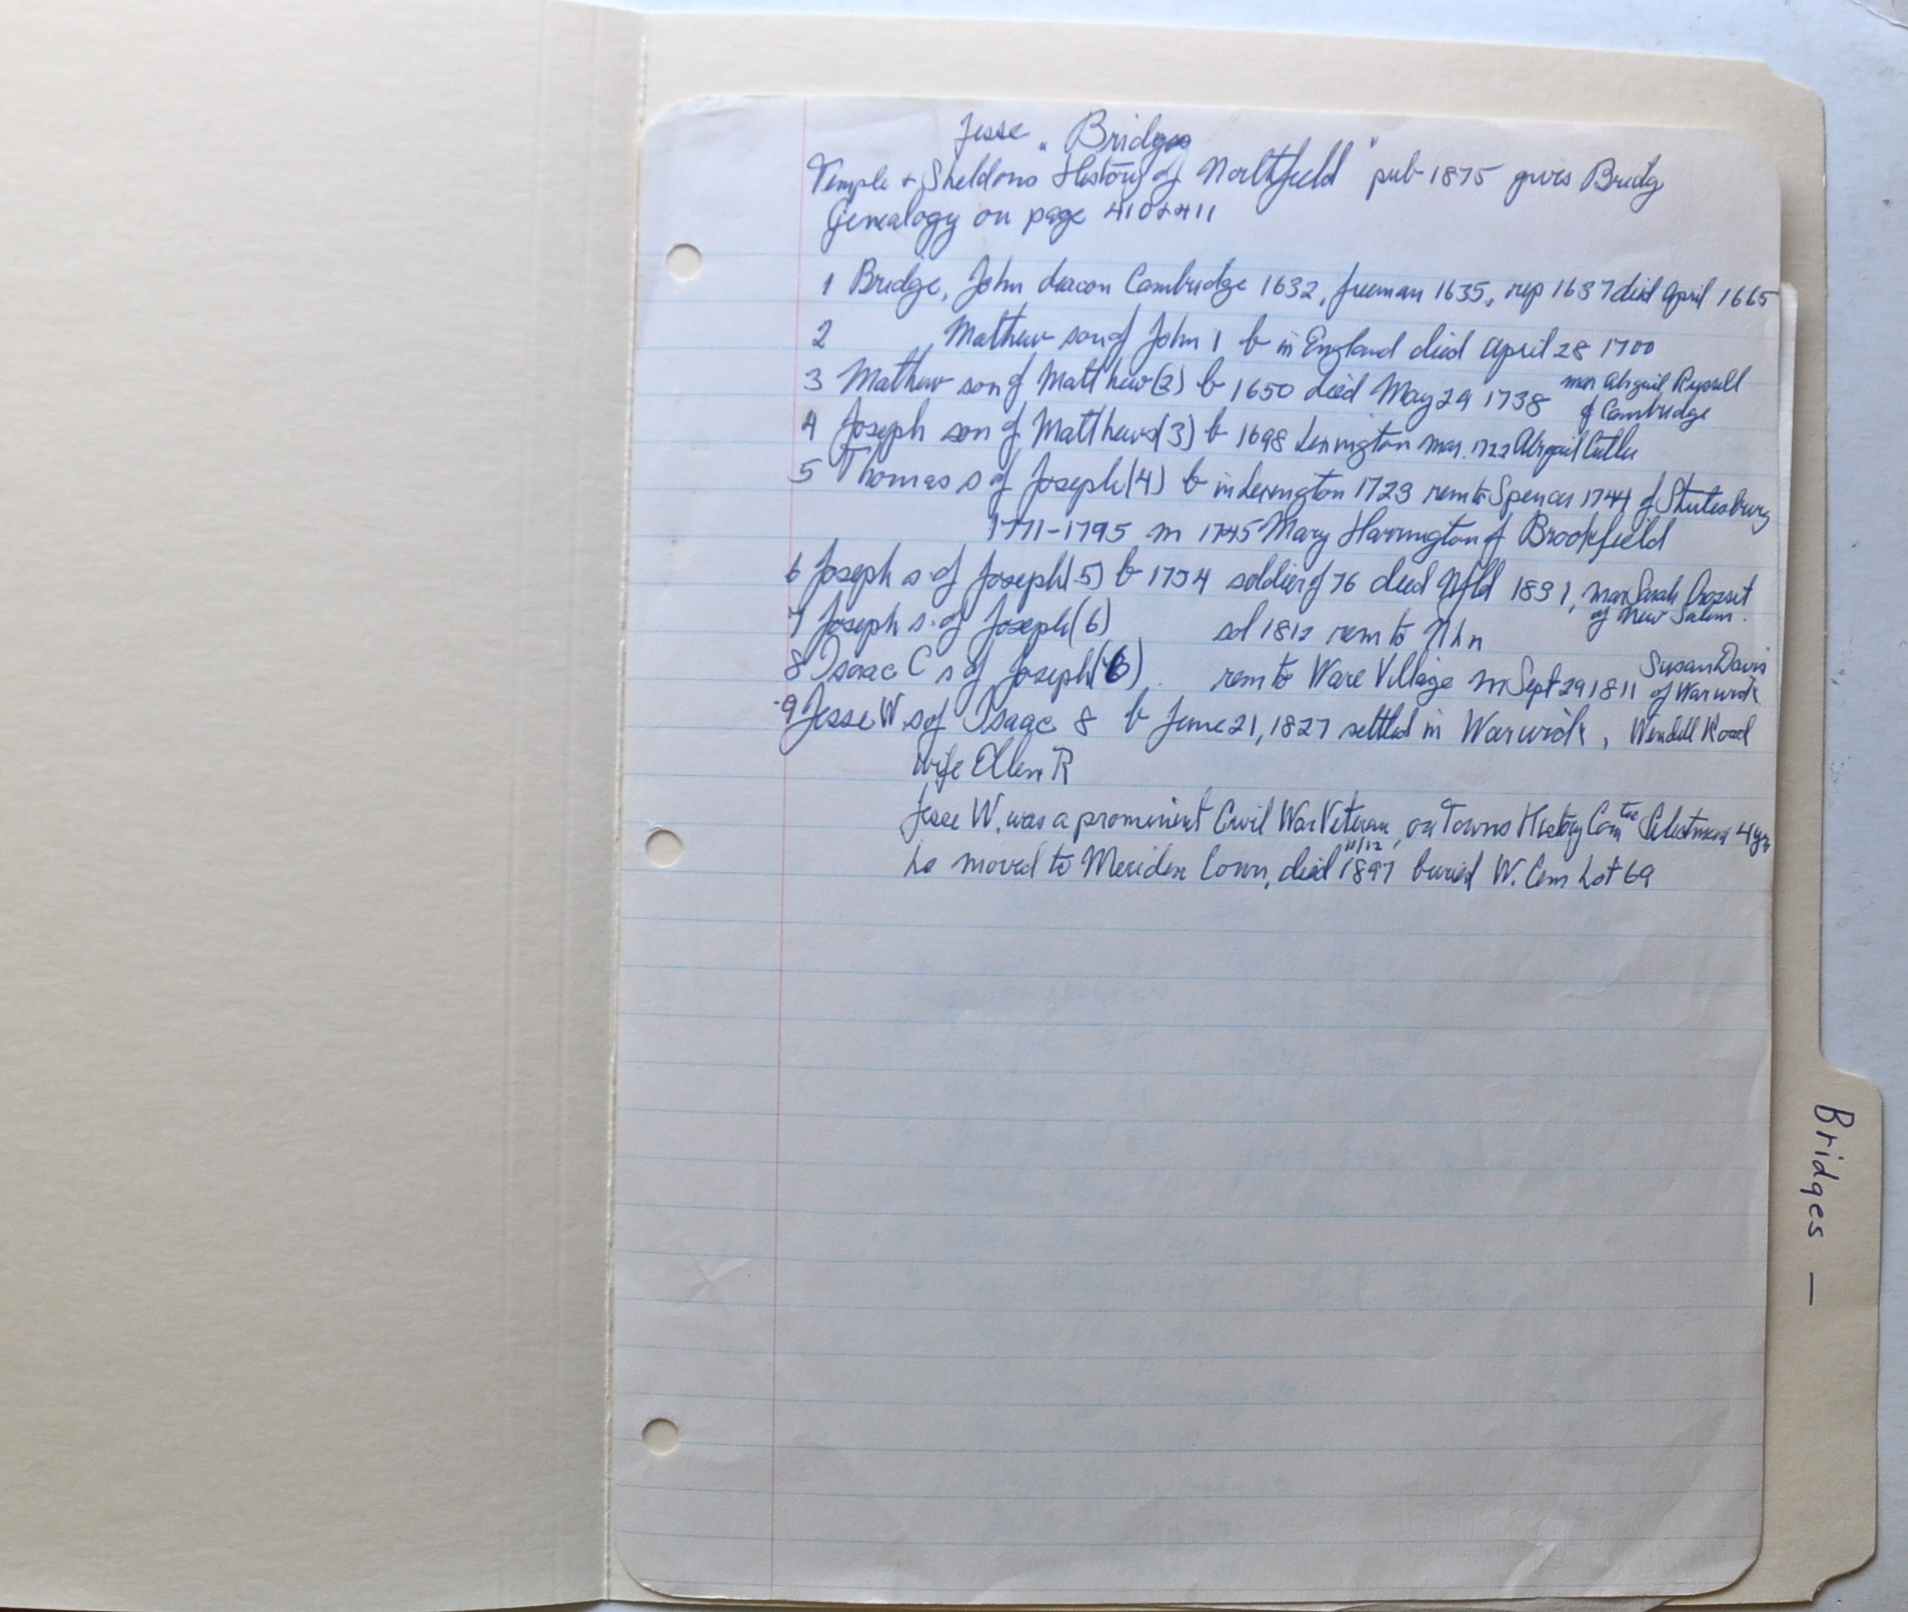 Jesse Bridges
Temple & Sheldons "History of Northfield" pub 1875 gives Bridg
Genealogy on page 410 & 411
1 Bridge, John deacon Cambridge 1632, freeman 1635, rep 1637 died April 1665
2 Mathew son of John 1 b in England died April 28 1700
3 Mathew son of Matthew (2) b 1650 died May 29 1738 mar Abigail Russell
of Cambridge
4 Joseph son of Matthew (3) b 1698 Lexington mar. 1722 Abigail Cutler
5 Thomas s of Joseph (4) b in Lexington 1723 rem to Spencer 1744 of Shutesbury
1771-1795 m 1745 Mary Harrington of Brookfield
6 Joseph s. of Joseph (5) b 1754 soldier of 76 died Nfld 1831, mar Sarah
of New Salem.
7 Joseph s. of Joseph (6) sol 1812 rem to
8 Isaac C s of Joseph (6). rem to Ware Village m Sept 29 1811 Susan Davis
of Warwick
9 Jesse W s of Isaac 8 b June 21, 1827 settled in Warwick, Wendell Road
Wife Ellen R
Jesse W. was a prominent Civil War Veteran, on Towns History Com tee Selectman 4 yr
he moved to Meriden Conn, died 11/12, 1897 buried W. Cem Lot 69
Bridges —